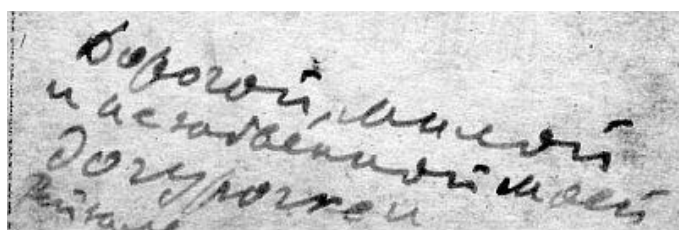 Дорогой, милой
и незабвенной моей
дочурочке